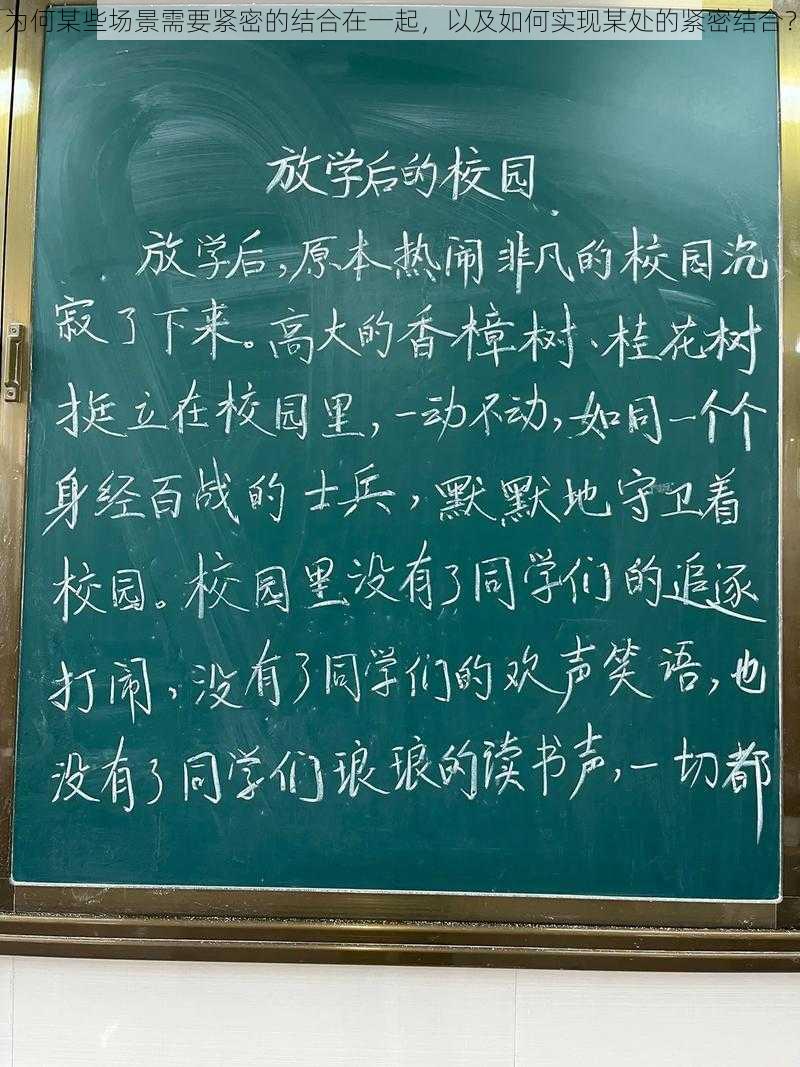 为何某些场景需要紧密的结合在一起，以及如何实现某处的紧密结合？
放学后的校园
放学后，原本热闹非凡的校园沉
寂了下来。高大的香樟树、桂花树
挺立在校园里，一动不动，如同一个个
身经百战的士兵，默默地守卫着
校园。校园里没有了同学们的追逐
打闹，没有了同学们的欢声笑语，也
没有了同学们琅琅的读书声，一切都